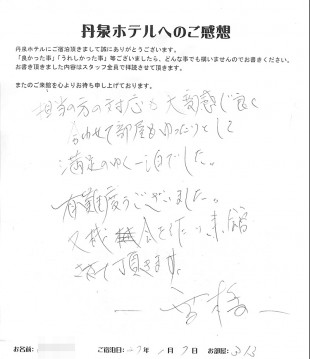 丹泉ホテルへのご感想
丹泉ホテルにご宿泊頂きまして誠にありがとうございます。
「良かった事」「うれしかった事」等ございましたら、どんな事でも構いませんのでお書きください。
お書き頂きました内容はスタッフ全員で拝読させて頂きます。
またのご来館を心よりお待ち申し上げております。
担当の方の対応も大変感じ良く
合わせて部屋もゆったりとして
満足のゆく一泊でした。
有難度うございました。
又機会を 来館
させて頂きます。
お名前: ご宿泊日: 年 月 日 お部屋: 313